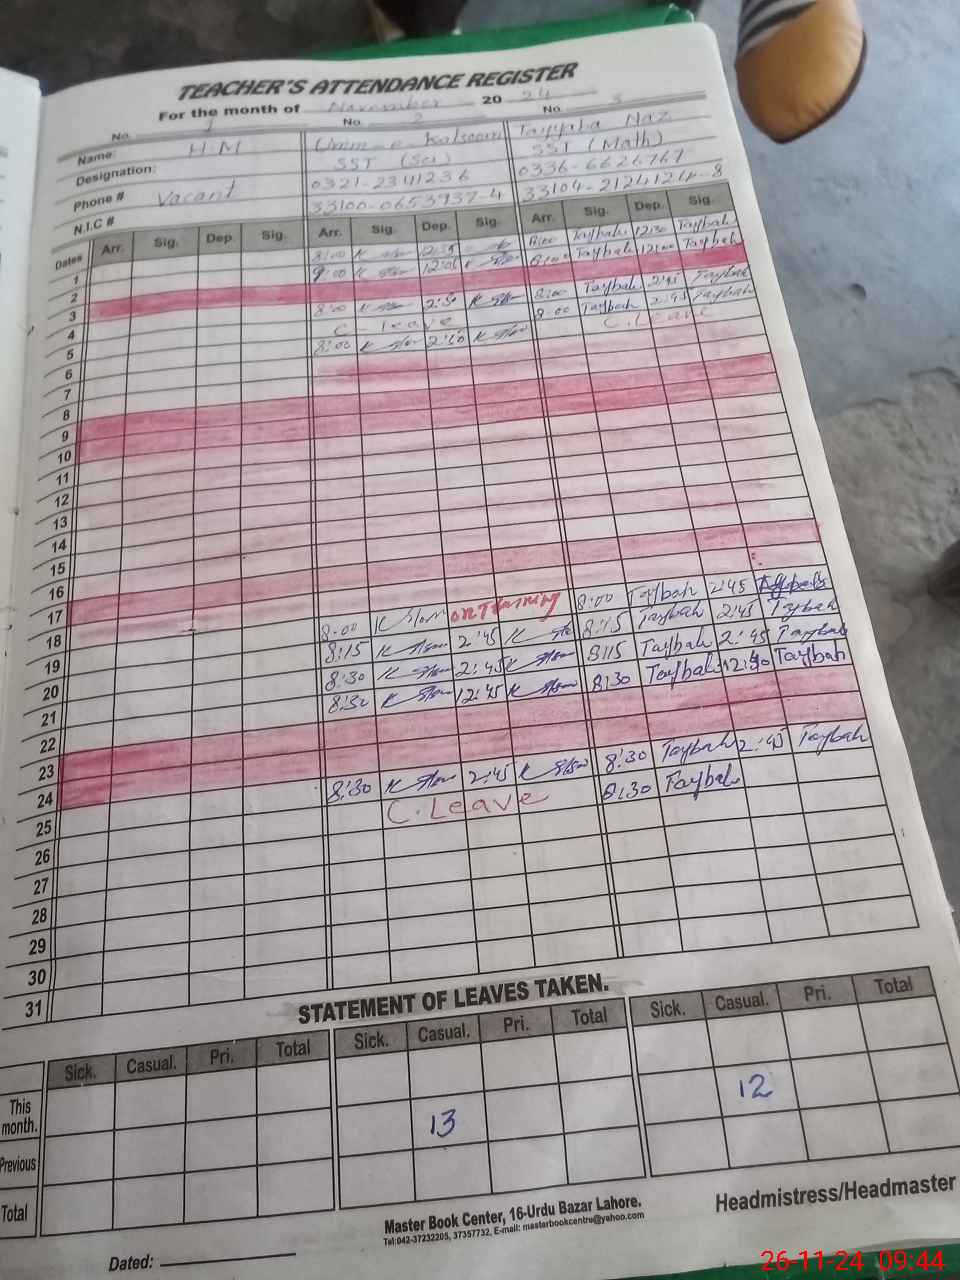 TEACHER'S ATTENDANCE REGISTER
For the month of November 2024
No. 1 No. 2 No. 3
Name: H.M Umm-e-Kalsoom Tayyaba Naz
Designation: SST (Sci) SST (Math)
Phone # Vacant 0321-2341236 0336-6626767
N.I.C # 33100-0653937-4 33104-2124124-8
Dates Arr. Sig. Dep. Sig. Arr. Sig. Dep. Sig. Arr. Sig. Dep. Sig.
1 8:00 12:30 Taybah
2 9:00 Taybah 12:00 Taybah
3
4 8:00 2:30 8:00 Taybah 2:45 Taybah
5 C-leave 8:00 Taybah 2:45 Taybah
6 8:00 C.Leave
7
8
9
10
11
12
13
14
15
16
17
18 8:00 ON Training 8:00 Taybah 2:45
19 8:15 2:45 8:15 Taybah 2:45 Taybah
20 8:30 2:45 8:15 Taybah 2:45 Taybah
21 8:30 12:45 8:30 Taybah Taybah
22
23
24
25 8:30 2:45 8:30 Taybah 2:45 Taybah
26 C.Leave 8:30 Taybah
27
28
29
30
31
STATEMENT OF LEAVES TAKEN.
Sick. Casual. Pri. Total Sick. Casual. Pri. Total Sick. Casual. Pri. Total
This month.
Previous 13 12
Total
Master Book Center, 16-Urdu Bazar Lahore.
Tel:042-37232205, 37357732, E-mail: masterbookcentre@yahoo.com
Headmistress/Headmaster
Dated:
26-11-24 09:44